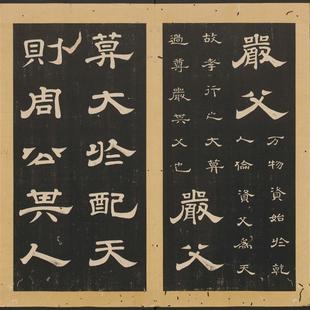 嚴父
万物資始於乾
人倫資父為天
故孝行之大莫
過尊嚴其父也
嚴父
莫大於配天
則周公其人